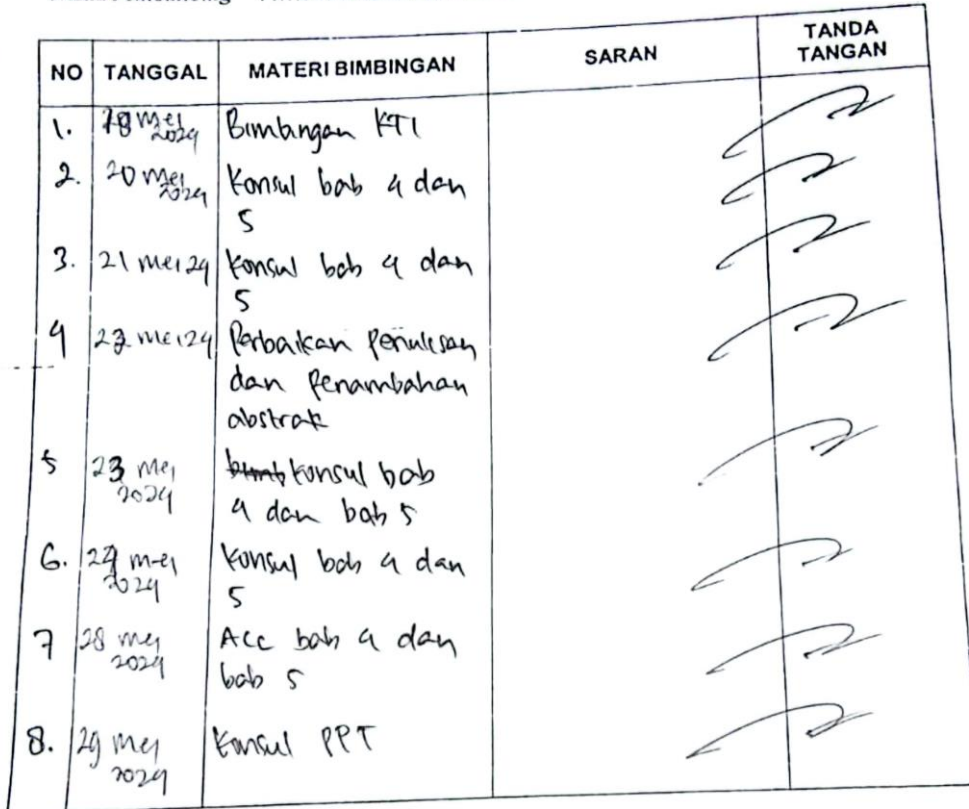 NO TANGGAL MATERI BIMBINGAN SARAN TANDA TANGAN
1. 18 Mei 2024 Bimbingan KTI
2. 20 Mei 2024 Konsul bab 4 dan
5
3. 21 Mei 24 Konsul bab 4 dan
5
4 22 Mei 24 Perbaikan Penulisan
dan Penambahan
abstrak
5 23 Mei 2024 konsul bab
4 dan bab 5
6. 24 Mei 2024 Konsul bab 4 dan
5
7 28 Mei 2024 Acc bab 4 dan
bab 5
8. 29 Mei 2024 Konsul PPT